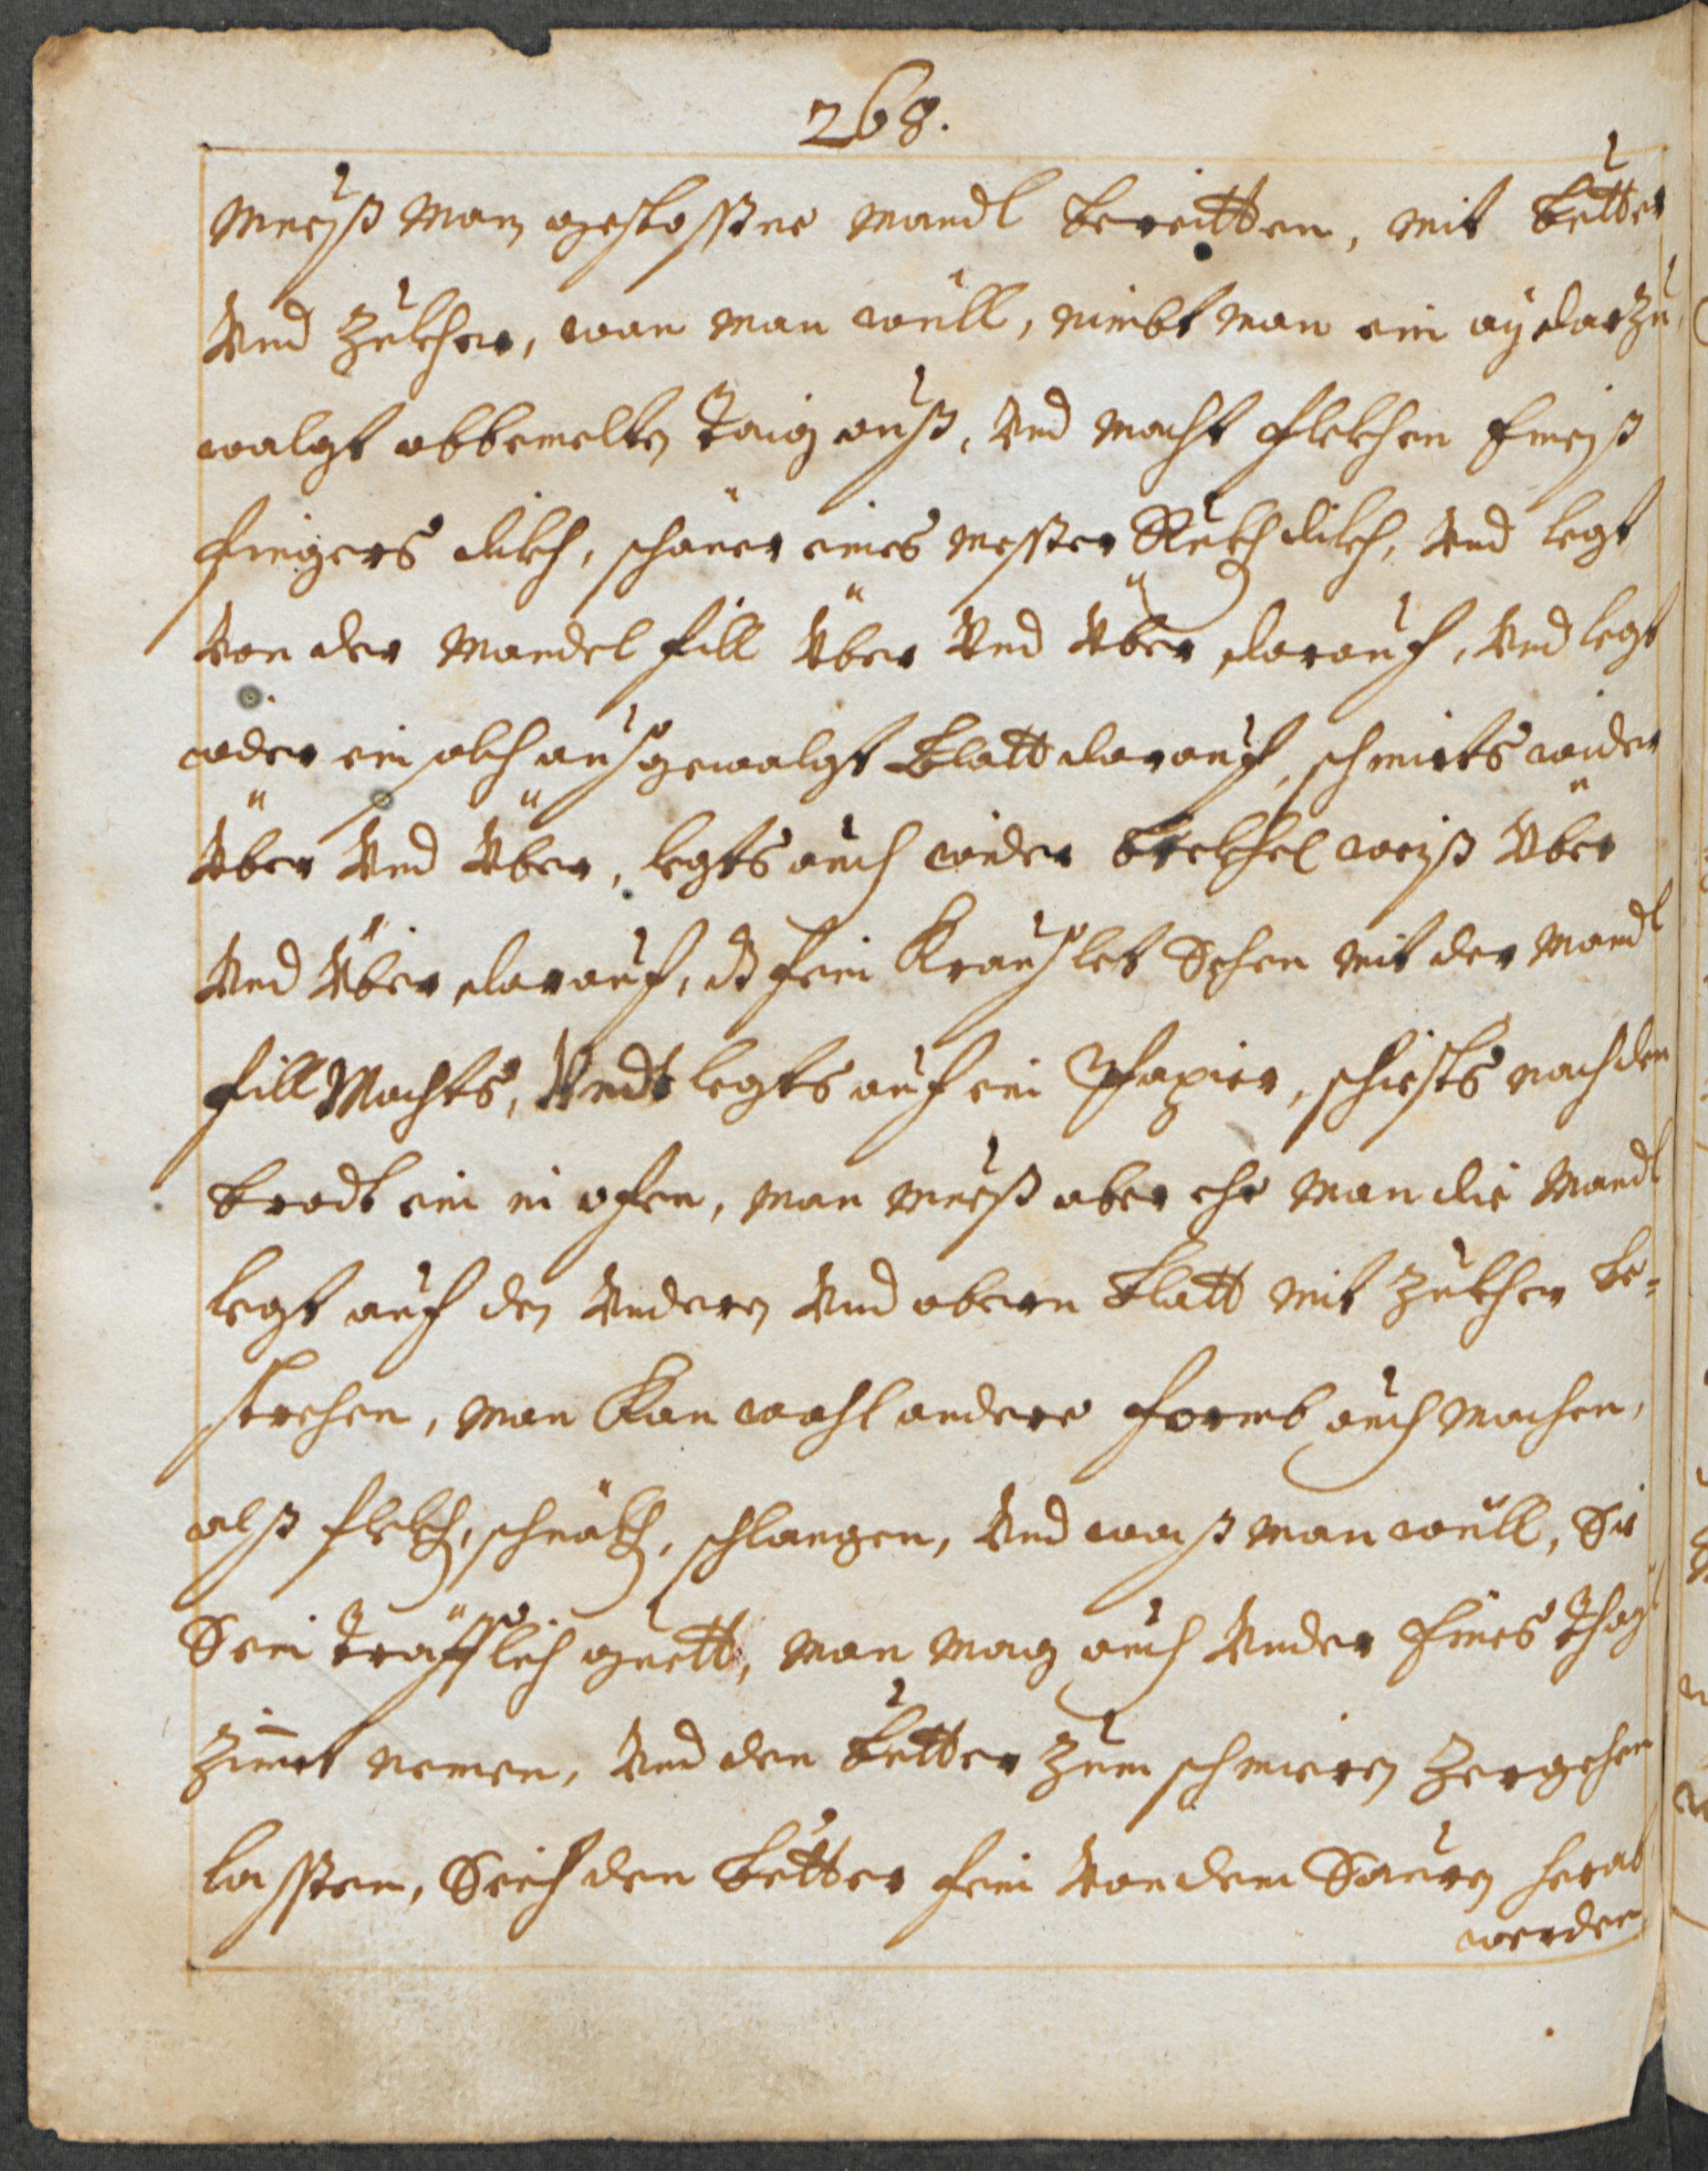 268.
mueß man gestossne mandl bereitten, mit butter
Vnd Zukher, wan man wüll, nimbt man ein aÿ darzu,
walgt obbemelten Taig auß, Vnd macht flekhen
fingers dikh, schäner eines messer Rukh dikh, Vnd legt
Von der Mandel füll Über Vnd Über darauf, Vnd legt
wider ein solch außgewalgt Blatt darauf, schmirts wider
Über Vnd Über, legts auch wider brekhel weiß Über
Vnd Über darauf, dz fein Kraußlet Sehen mit der Mandl
füll Machts, Vndt legts auf ein Papier, schiests nach den
brodt ein in ofen, man mueß aber ehe man die Mandl
legt auf den Vnderen Vnd obern Blatt mit Zukher be=
strehen, man Kan wohl andere formb auch machen,
alß flekh, schnäkh, schlangen, Vnd waß man wüll, Sie
Sein träfflich guett, man mag auch Vnder fines
Zimet nemen, Vnd den butter Zum schmieren Zergehen
lasssen, Seich den butter fein Von dem Sauren herab
werden